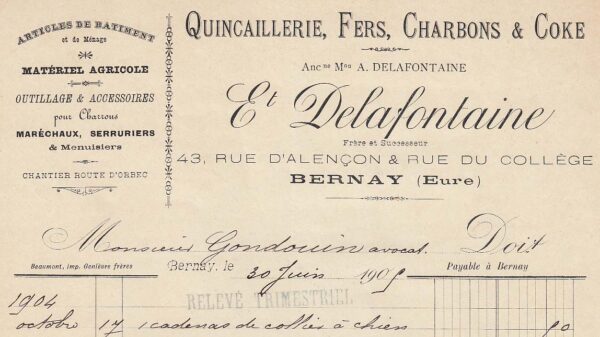 ARTICLES DE BATIMENT
et de Ménage
MATÉRIEL AGRICOLE
OUTILLAGE & ACCESSOIRES
pour Charrons
MARÉCHAUX, SERRURIERS
& Menuisiers
CHANTIER ROUTE D'ORBEC
QUINCAILLERIE, FERS, CHARBONS & COKE
Anc ne Mon A. DELAFONTAINE
Et Delafontaine
Frère et Successeur
43, RUE D'ALENÇON & RUE DU COLLÈGE
BERNAY (Eure)
Monsieur Gondouin avocat. Doit
Beaumont, imp. Genieure frères
Bernay, le 30 Juin 1905
Payable à Bernay
RELEVÉ TRIMESTRIEL
1904
octobre 17 1 cadenas de collier à chien